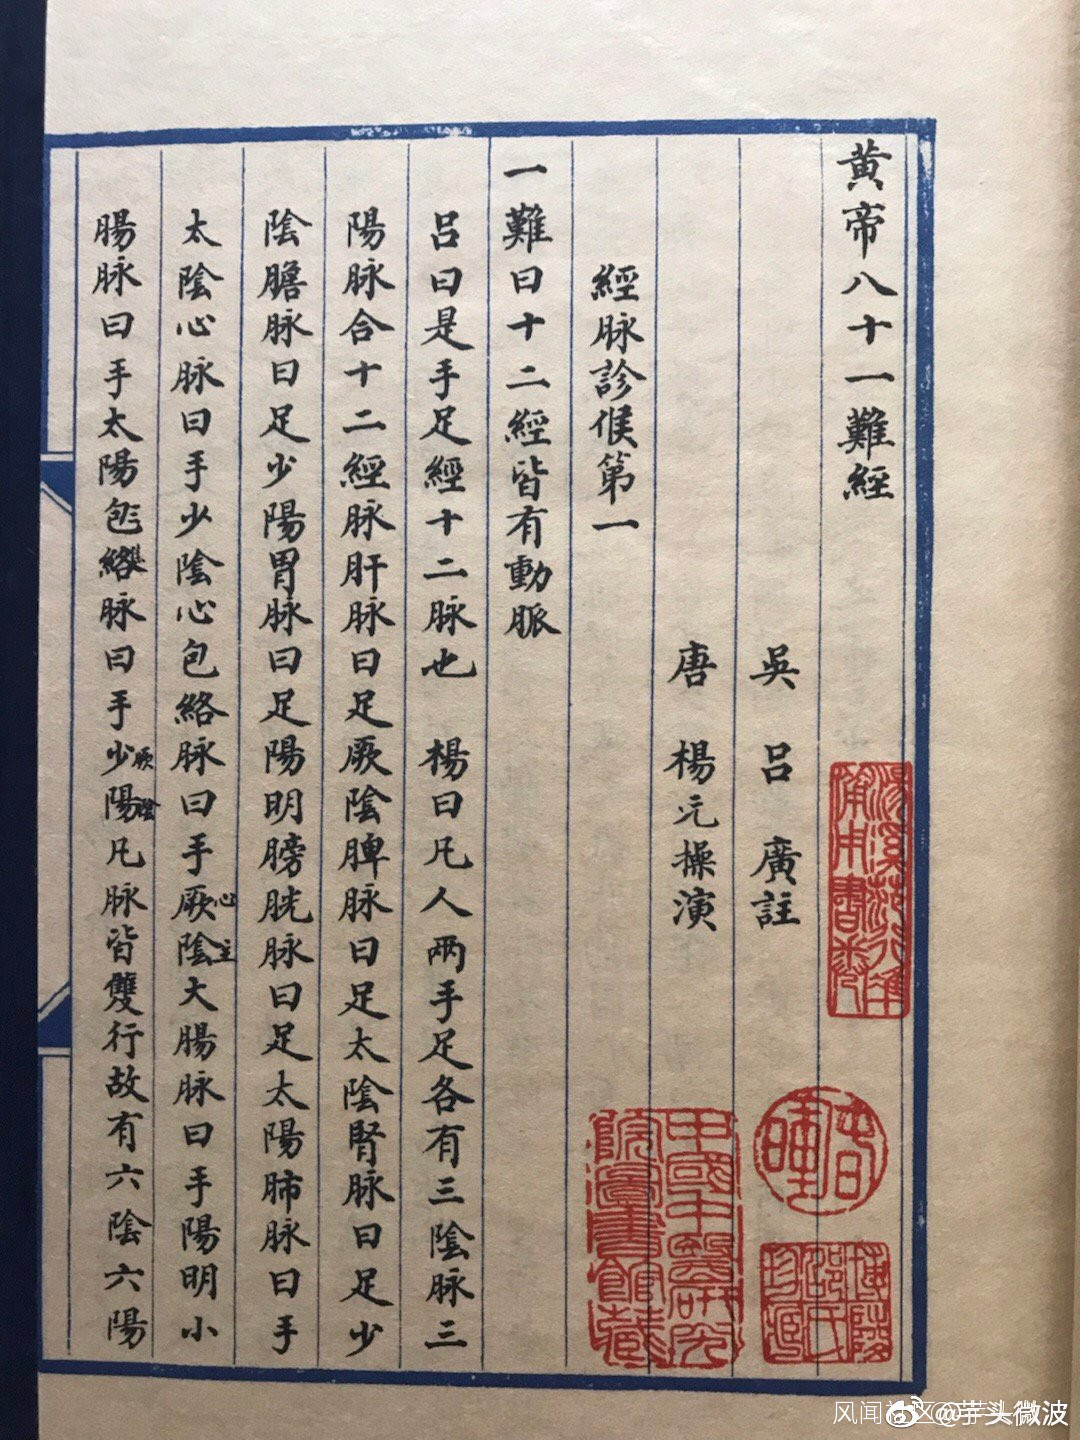 黃帝八十一難經
吳 呂 廣註
唐 楊元操演
經脉診候第一
一難曰十二經皆有動脈
呂曰是手足經十二脉也 楊曰凡人兩手足各有三陰脉三
陽脉合十二經脉肝脉曰足厥陰脾脉曰足太陰腎脉曰足少
陰膽脉曰足少陽胃脉曰足陽明膀胱脉曰足太陽肺脉曰手
太陰心脉曰手少陰心包絡脉曰手厥陰大腸脉曰手陽明小
心主
腸脉曰手太陽包絡脉曰手少陽凡脉皆雙行故有六陰六陽
厥陰
中國中醫研究
院圖書館藏
博陵
邵氏
珍藏
风闻社区
@芋头微波